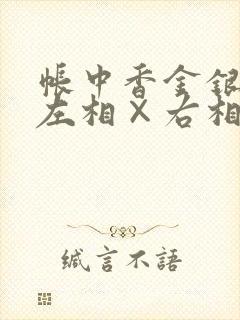 帳中香金銀
左相×右相
缄言不語